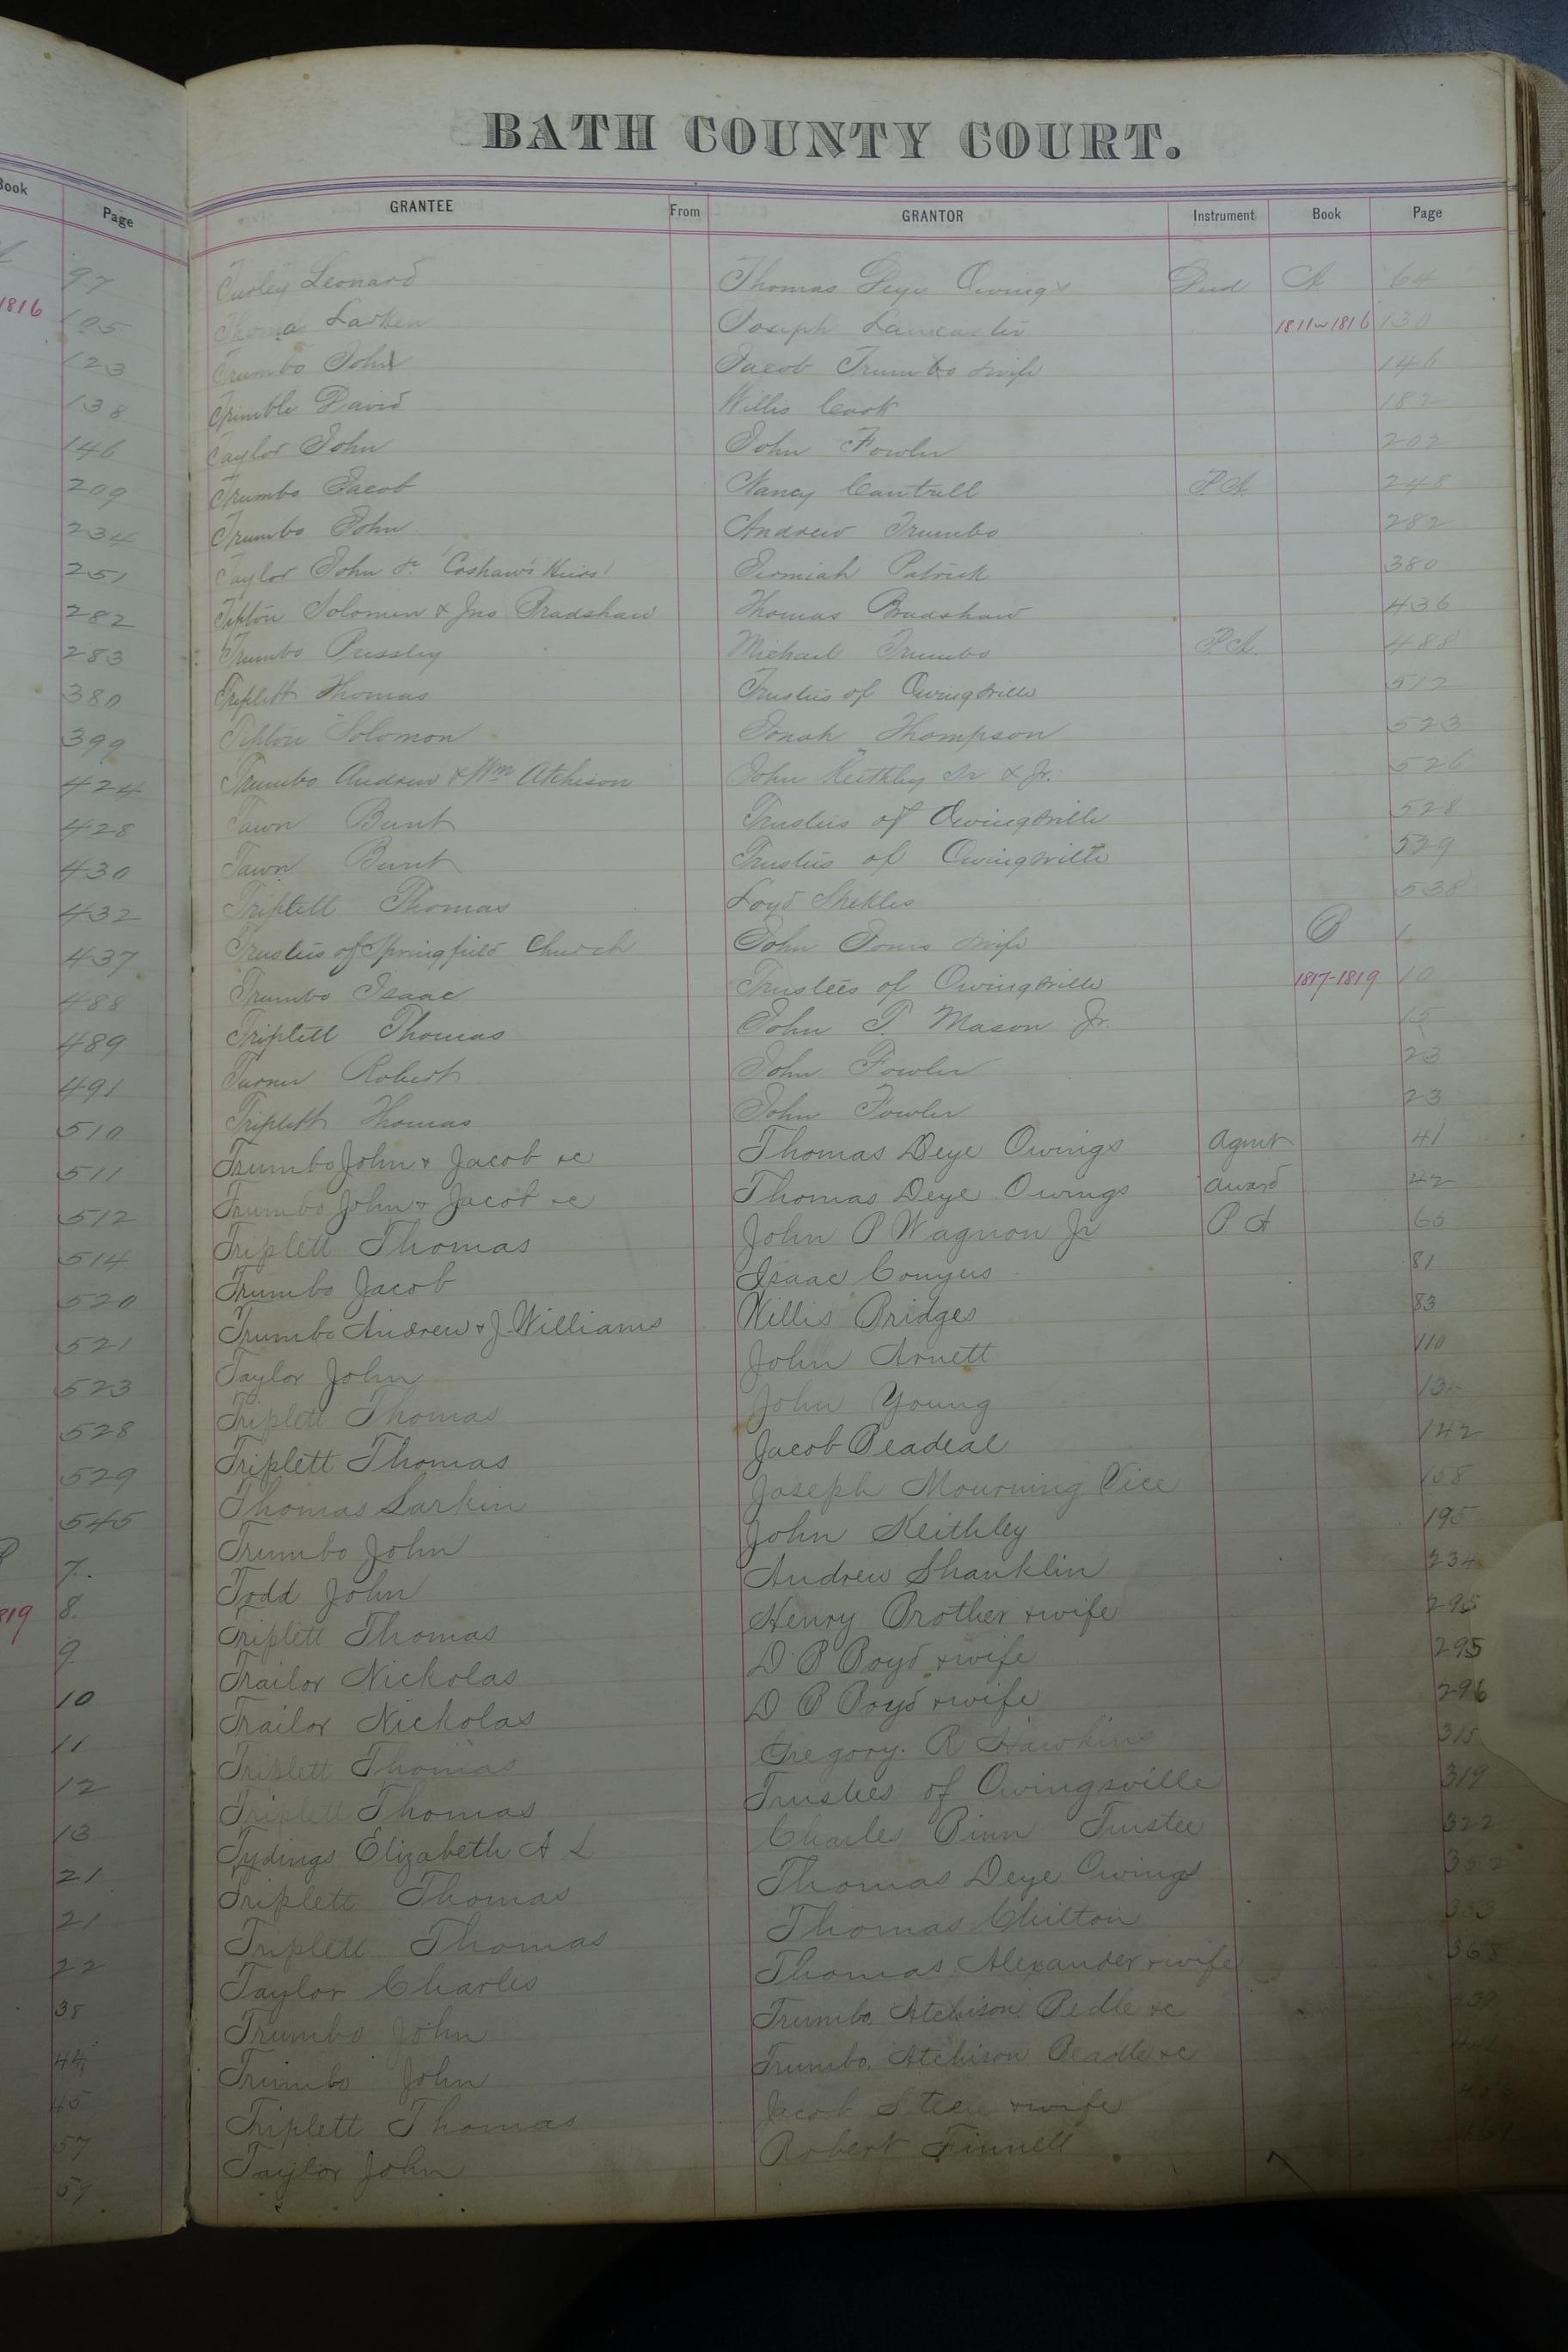 BATH COUNTY COURT.
Book Page
GRANTEE From GRANTOR Instrument Book Page
97
1816 105
123
138
146
209
234
251
282
283
380
399
424
428
430
432
437
488
489
491
510
511
512
514
520
521
523
528
529
545
7.
819 8.
9
10
11
12
13
21
21
22
38
44
45
57
57
Turley Leonard Thomas Deye Owings Deed A 64
Thomas Larken Joseph Lancaster 1811 to 1816 130
Trumbo John Jacob Trumbo & wife 146
Trimble David Willis Cook 182
Taylor John John Fowler 202
Trumbo Jacob Nancy Cantrell P.A. 248
Trumbo John Andrew Trumbo 282
Taylor John & "Coshaw's Heirs" Jermiah Patrick 380
Tipton Solomon & Jno Bradshaw Thomas Bradshaw 436
Trumbo Pressley Michael Trumbo P.A. 488
Triplett Thomas Trustees of Owingsville 512
Tipton Solomon Jonah Thompson 523
Trumbo Andrew & Wm Atchison John Keithley Sr & Jr. 526
Tawn Burt Trustees of Owingsville 528
Tawn Burt Trustees of Owingsville 529
Triplett Thomas Loyd Shekles 538
Trustees of Springfield Church John Jones & wife B 1
Trumbo Isaac Trustees of Owingsville 1817-1819 10
Triplett Thomas John T. Mason Jr. 15
Turner Robert John Fowler 23
Triplett Thomas John Fowler 23
Trumbo John & Jacob &c Thomas Deye Owings Agmt 41
Trumbo John & Jacob &c Thomas Deye Owings award 42
Triplett Thomas John P Wagnon Jr P A 65
Trumbo Jacob Isaac Conyers 81
Trumbo Andrew & J. Williams Willis Bridges 83
Taylor John John Arnett 110
Triplett Thomas John Young
Triplett Thomas Jacob Beadeal 142
Thomas Larkin Joseph Mourning Vice 158
Trumbo John John Keithley 195
Todd John Andrew Shanklin 234
Triplett Thomas Henry Brother & wife 295
Trailor Nickolas D B Boyd & wife 295
Trailor Nickolas D B Boyd & wife 296
Triplett Thomas Gregory. R Hawkins 315
Triplett Thomas Trustees of Owingsville 319
Tydings Elizabeth A L Charles Binn Trustee 322
Triplett Thomas Thomas Deye Owings 352
Triplett Thomas Thomas Chilton 353
Taylor Charles Thomas Alexander & wife 368
Trumbo John Trumbo, Atchison Bedle &c
Trumbo John Trumbo, Atchison Beadle &c
Triplett Thomas Jacob Steele & wife
Taylor John Robert Finnell